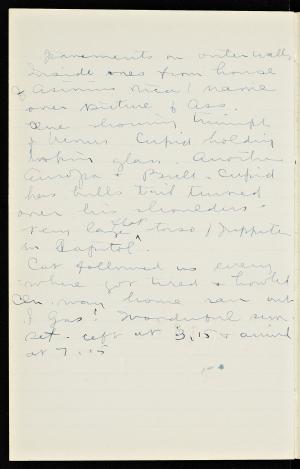 pavements on outer walls.
Inside ones from house
of Asinius Nica / name
over picture of Ass.
One showing triumph
of Venus Cupid holding
looking glass. Another
Europa & Bull. Cupid
has bulls tail turned
over his shoulders &
very large flat torso / Juppiter
in Capitol.
Cat followed us every
where got tired & howled
On way home ran out
of gas! Wonderful sun-
set. Left at 3,15 & arrived
at 7.15